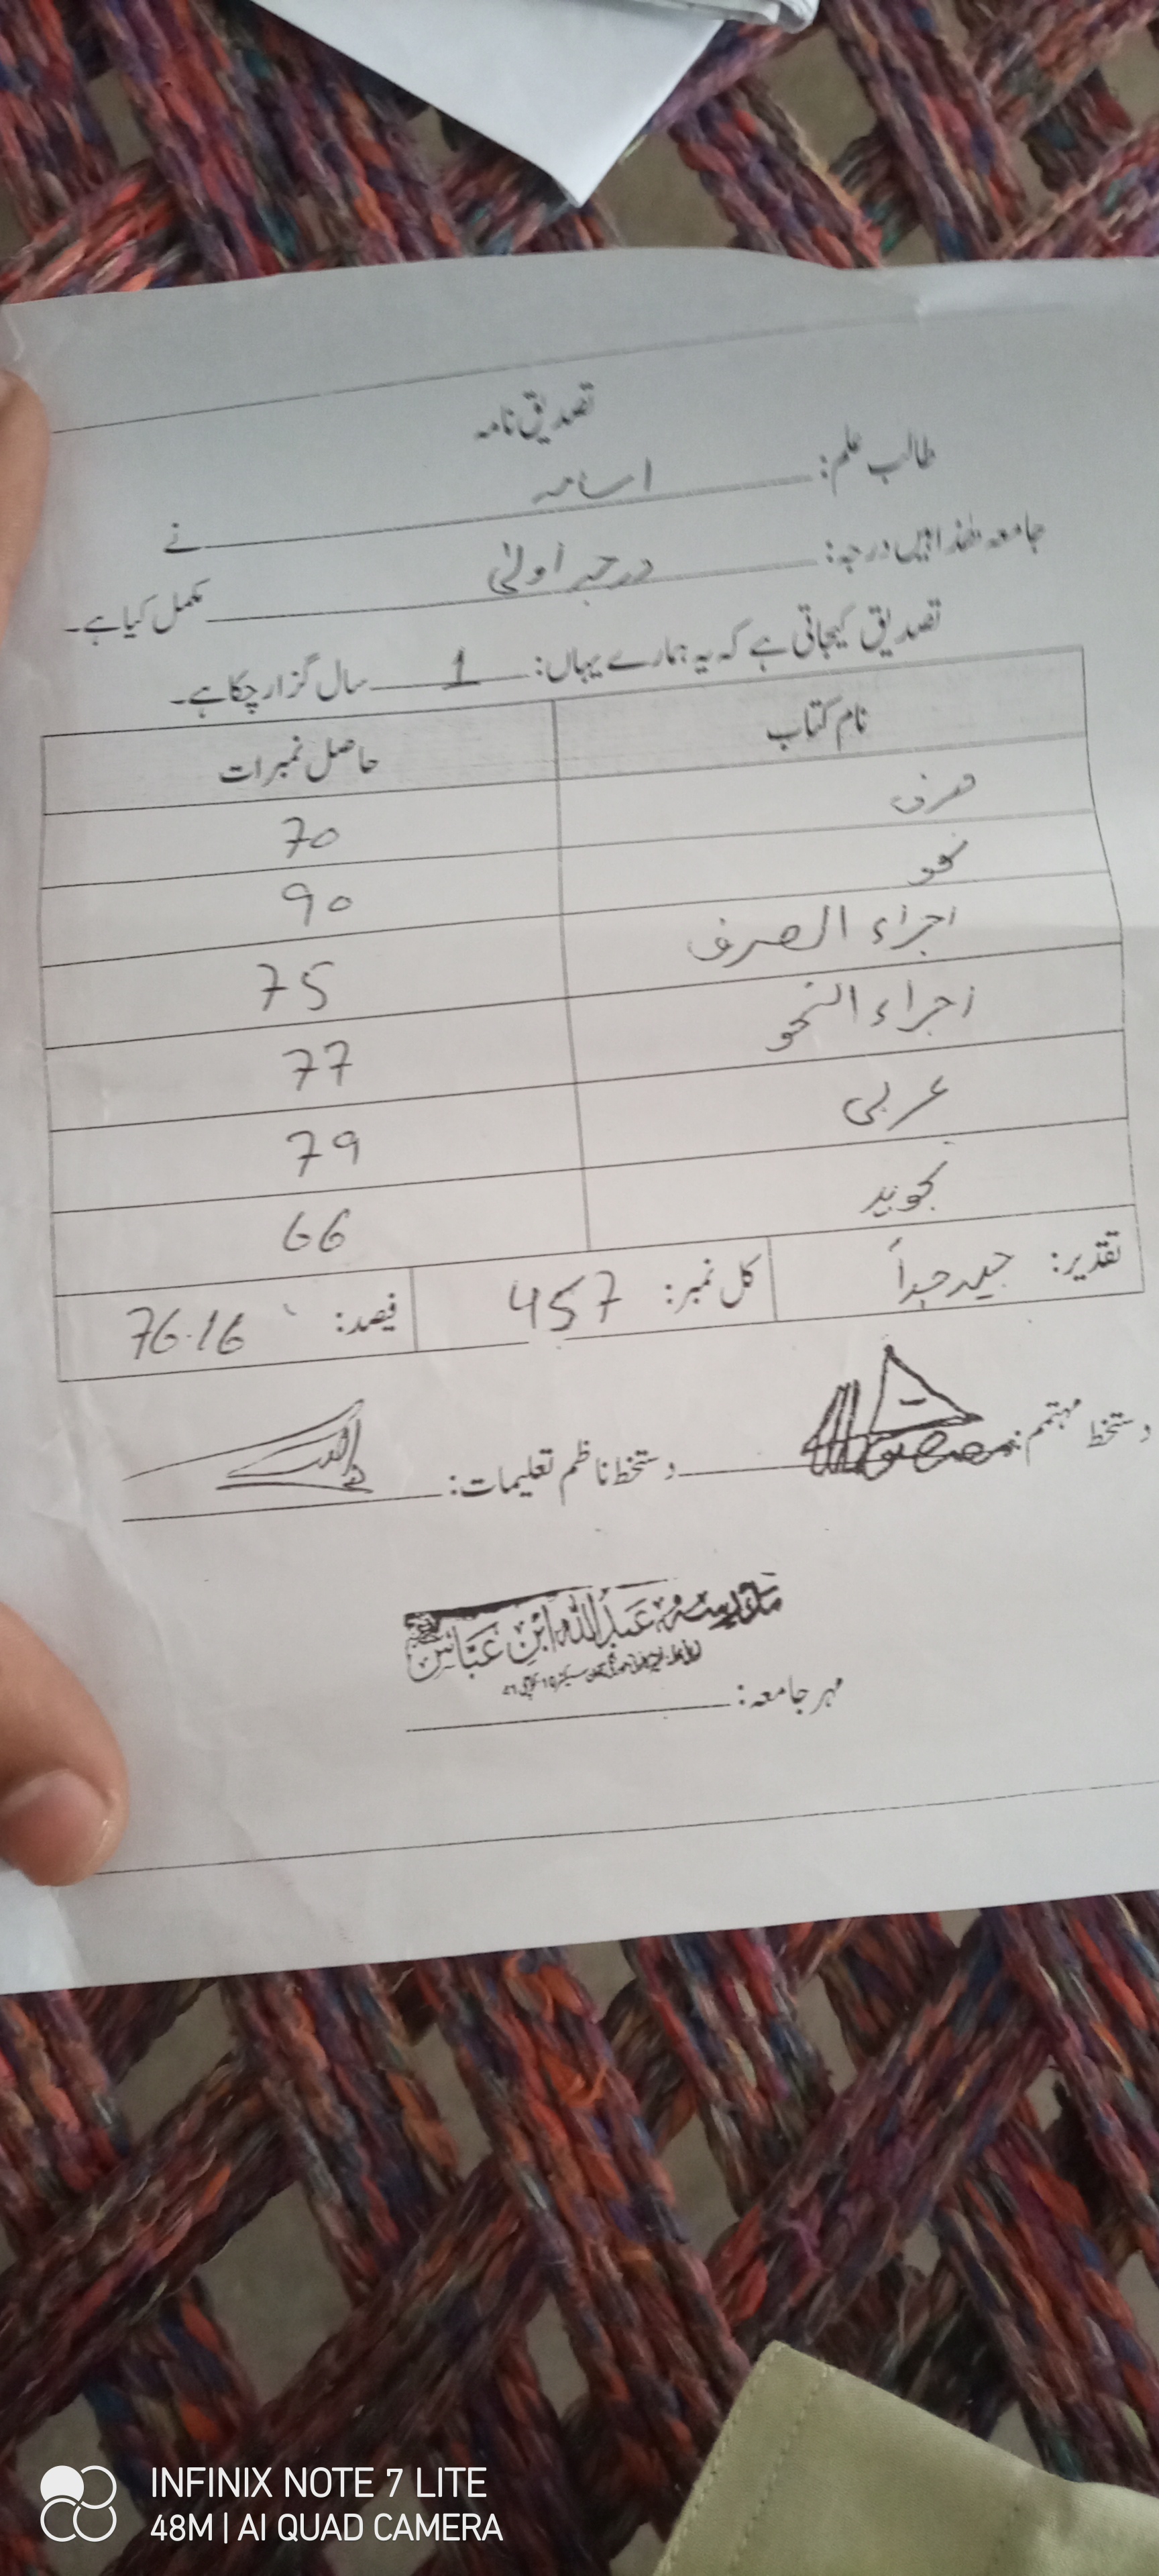 تصدیق نامہ
طالب علم: اسامہ نے
جامعہ ھٰذا میں درجہ: درجہ اولیٰ مکمل کیا ہے۔
تصدیق کیجاتی ہے کہ یہ ہمارے یہاں: 1 سال گزار چکا ہے۔
نام کتاب حاصل نمبرات
صرف 70
نحو 90
اجراء الصرف 75
اجراء النحو 77
عربی 79
تجوید 66
تقدیر: جید جداً کل نمبر: 457 فیصد: 76.16
دستخط مہتمم: دستخط ناظم تعلیمات:
مدرسہ عبداللہ ابن عباس
مہر جامعہ:
INFINIX NOTE 7 LITE
48M | AI QUAD CAMERA